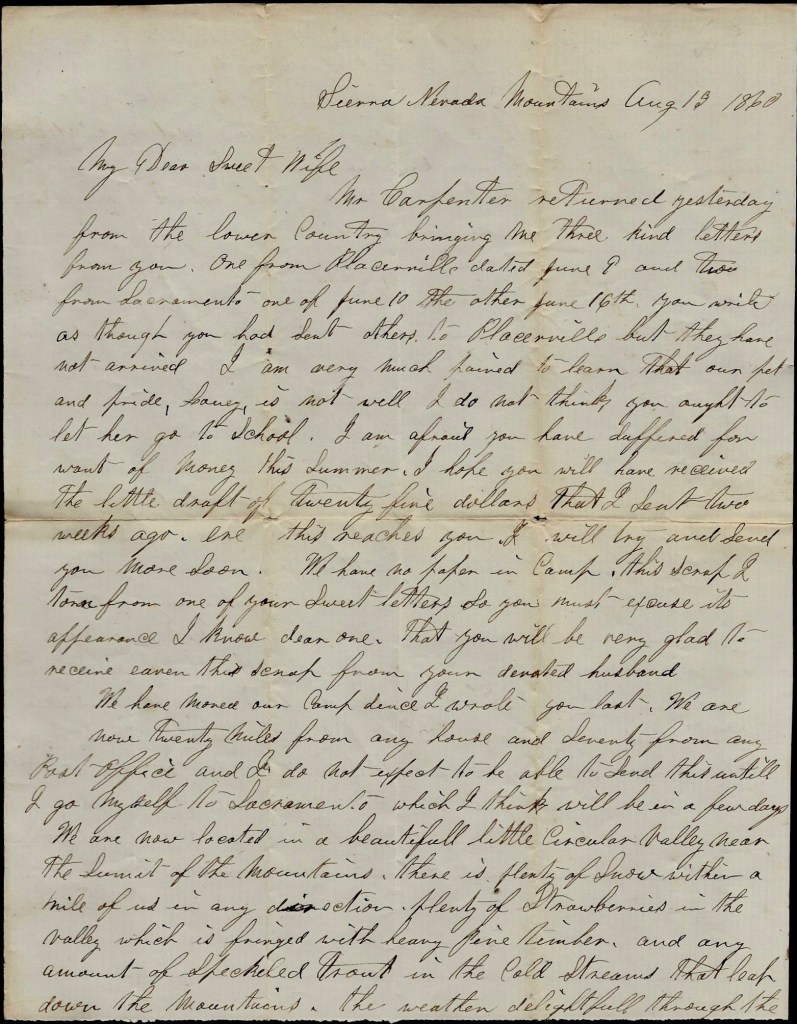 Sierra Nevada Mountains Aug 13 1860
My Dear Sweet Wife
Mr Carpenter returned yesterday
from the lower Country bringing me three kind letters
from you. One from Placerville dated June 9 and two
from Sacramento one of June 10 the other June 16th. you write
as though you had sent others. to Placerville but they have
not arrived I am very much pained to learn that our pet
and pride, is not well I do not think you ought to
let her go to School. I am afraid you have suffered for
want of money this Summer. I hope you will have received
the little draft of Twenty five dollars that I sent two
weeks ago. ere this reaches you. I will try and send
you more soon. We have no paper in Camp. this scrap I
torn from one of your sweet letters so you must excuse its
appearance I know dear one. that you will be very glad to
receive eaven this scrap from your devoted husband
We have moved our Camp since I wrote you last. We are
now Twenty miles from any house and Seventy from any
Post Office and I do not expect to be able to send this untill
I go myself to Sacramento which I think will be in a few days
We are now located in a beautifull little Circular Valley near
the Sumit of the Mountains. there is plenty of Snow within a
mile of us in any direction. plenty of Strawberries in the
valley which is fringed with heavy pine timber. and any
amount of Speckeled Trout in the Cold Streams that leap
down the Mountains. the weather delightfull through the